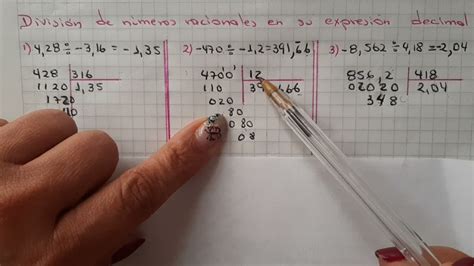 División de números racionales en su expresión decimal
1) 4,28 ÷ -3,16 = -1,35
428 316
1120 1,35
1720
40
2) -470 ÷ -1,2 = 391,66
4700 12
110 ,66
020
80
80
08
3) -8,562 ÷ 4,18 = -2,04
856,2 418
02020 2,04
348